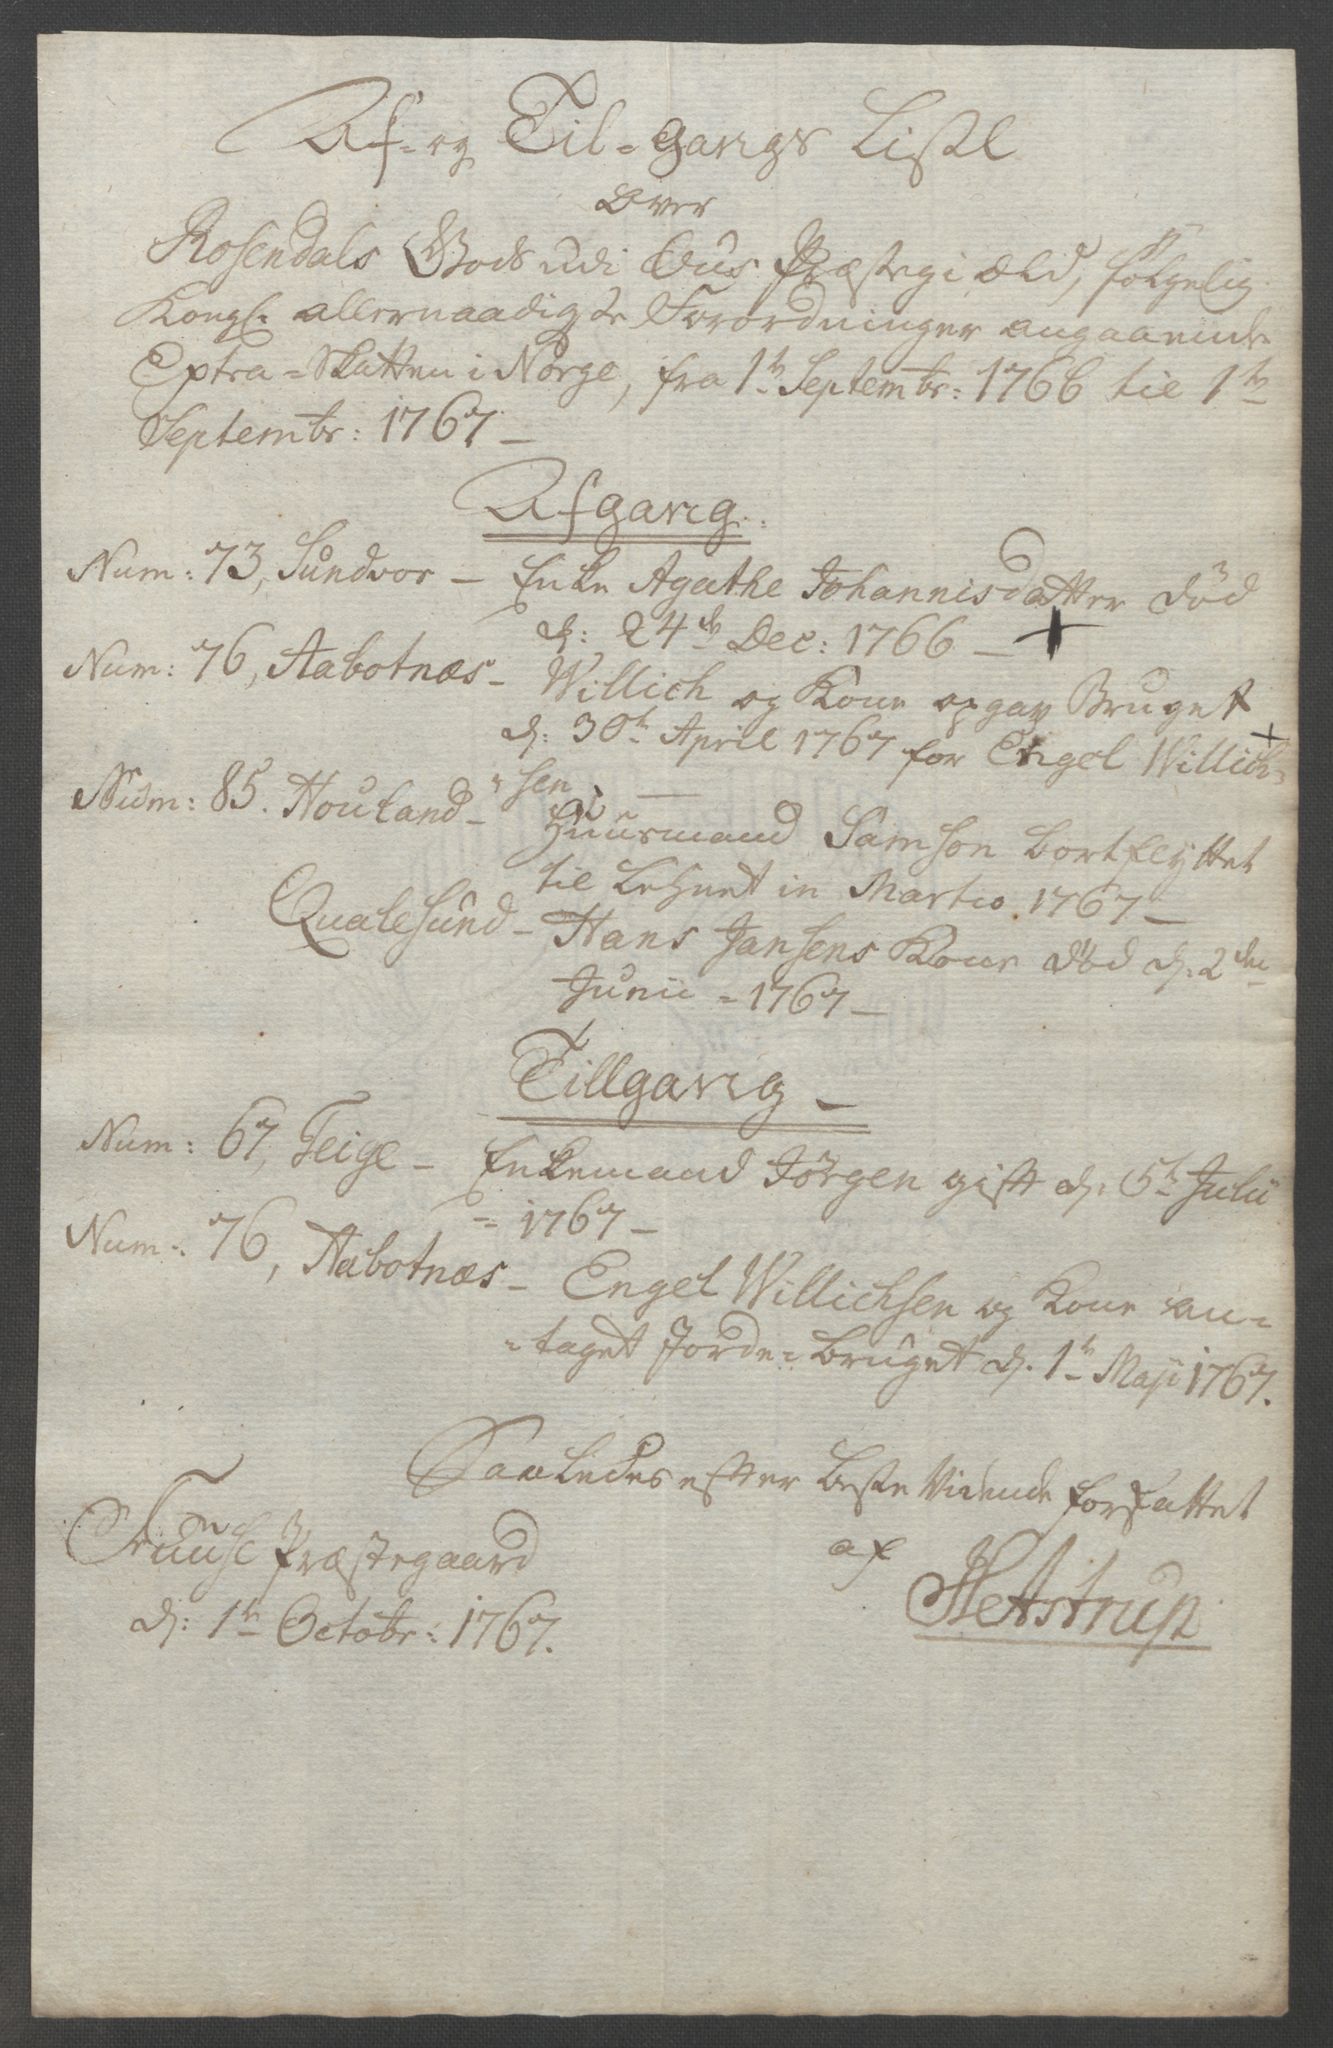 Af- og Til-gangs Liste
over
Rosendals Gods udi Ous Præstegiæld, følgelig
Kongl. allernaadigste Forordninger angaaende
Extra-Skatten i Norge, fra 1te Septembr: 1766 til 1te
Septembr: 1767 –
Afgang.
Num: 73, Sundvor – Enke Agathe Johannisdatter død
d: 24de Dec: 1766 – +
Num: 76, Aabotnæs – Willich og Kone opgav Bruget
d: 30te April 1767 for Engel Willich- +
-sen –
Num: 85. Houland – Huusmand Samson bortflyttet
til Lehnet in Martio 1767 –
Qualesund – Hans Jansens Kone død d: 2den
Junii - 1767 –
Tillgang –
Num: 67, Teige – Enkemand Jørgen gift d: 5te Julii
- 1767 –
Num: 76, Aabotnæs – Engel Willichsen og Kone an-
-taget Jorde-bruget d. 1te Maji 1767.
Saaledes efter beste Vidende forfattet
af
Fuuse Præstegaard
d: 1te Octobr: 1767.